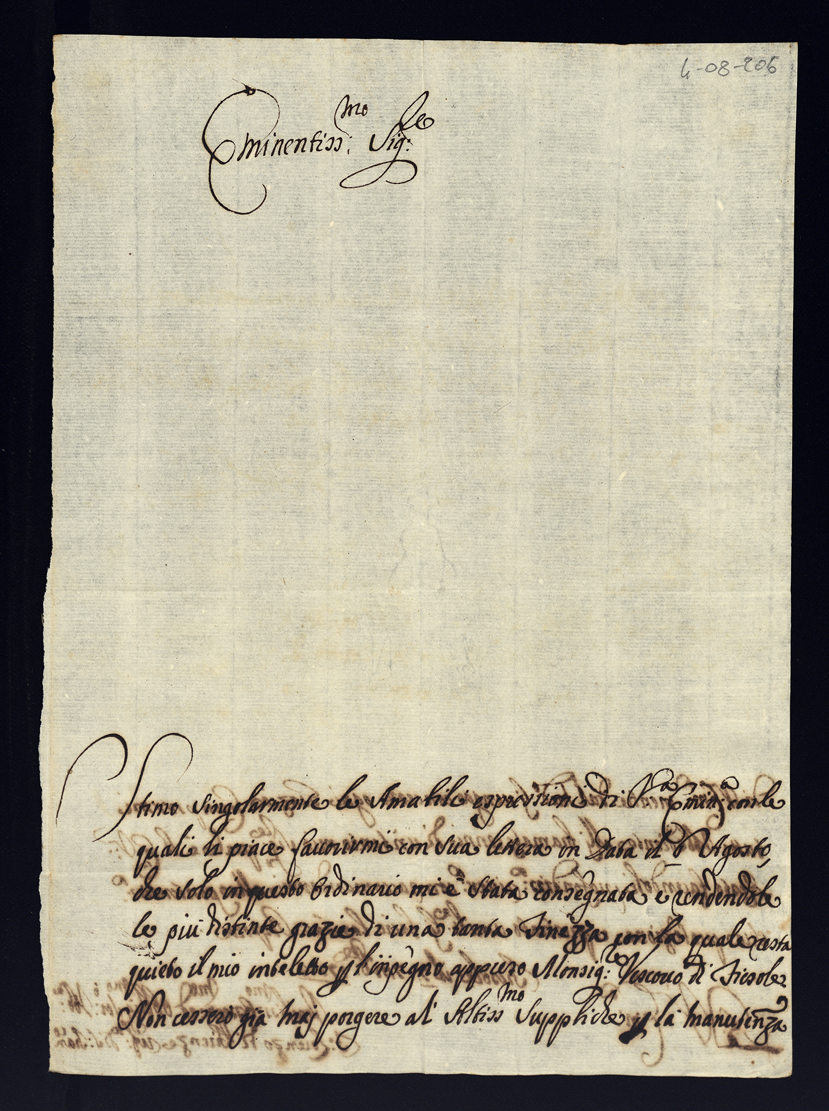 4-08-206
Eminentiss:mo Sig:re
Stimo singolarmente le Amabili espressione di V.a Emin:a con le
quali li piace favorirmi con sua lettera in Data di Agosto,
che solo in questo ordinario mi è stata consegnata e rendendole
le piu distinte grazie di una tanta finezza con la quale resta
quieto il mio inteletto l'impegno appiero Monsig:re Vescovo di Fiesole
Non cesserò già maj porgere al Altiss:mo Suppliche la manutenza